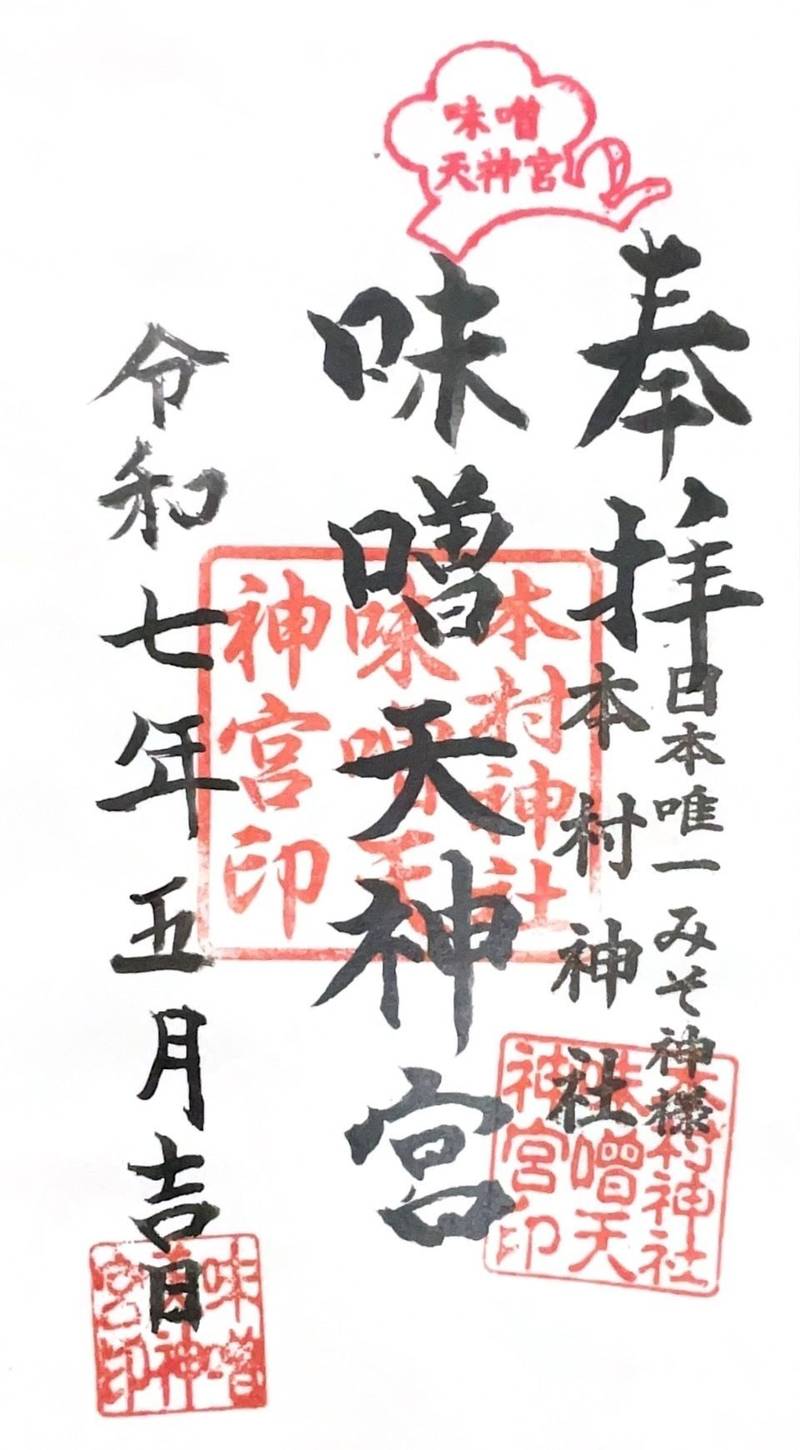 味噌
天神宮
奉拝
日本唯一みそ神様
本村神社
味噌天神宮
令和七年五月吉日
本村神社
味噌天
神宮印
本村神社
味噌天
神宮印
味噌
神
宮印